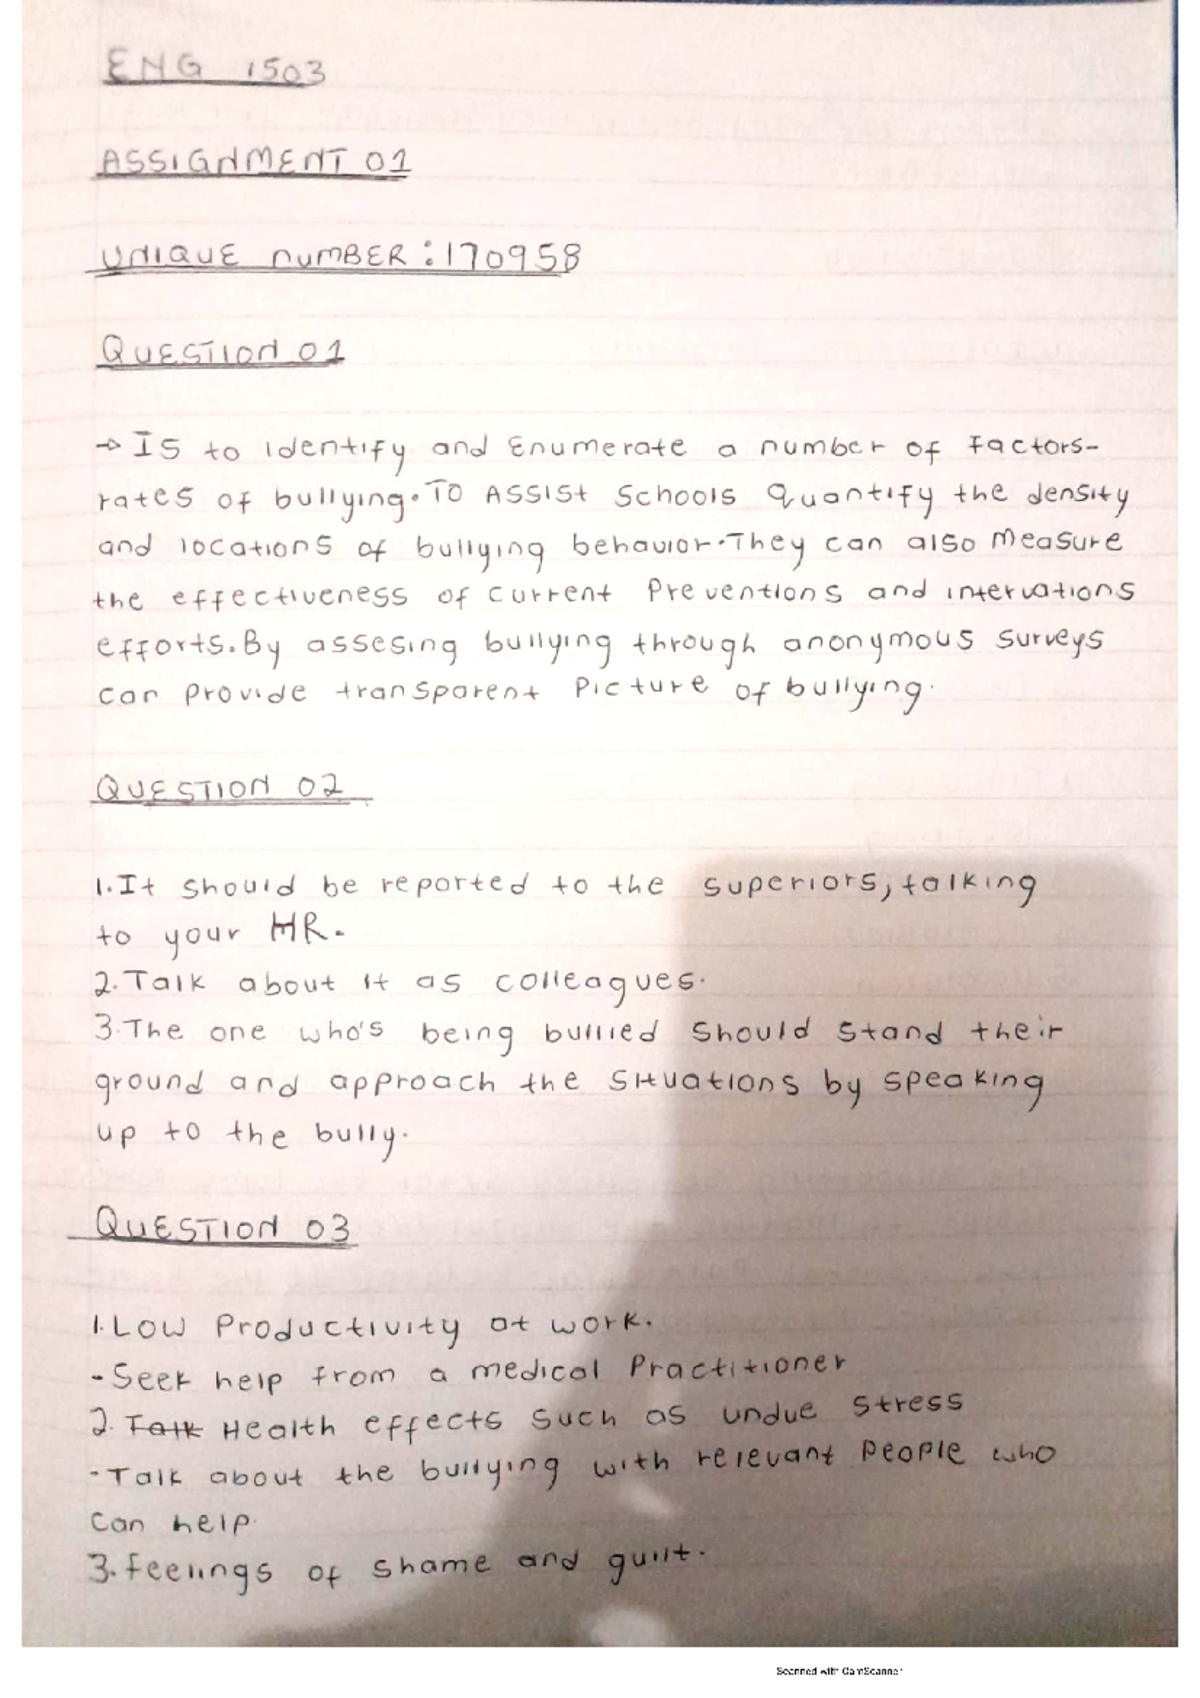 ENG 1503
ASSIGNMENT 01
UNIQUE NUMBER : 170958
QUESTION 01
→ Is to identify and Enumerate a number of Factors-
rates of bullying. To Assist Schools quantify the density
and locations of bullying behavior. They can also measure
the effectiveness of current Preventions and intervations
efforts. By assesing bullying through anonymous surveys
can provide transparent Picture of bullying.
QUESTION 02
1. It should be reported to the superiors, talking
to your HR.
2. Talk about it as colleagues.
3. The one who's being bullied should stand their
ground and approach the situations by speaking
up to the bully.
QUESTION 03
1. Low Productivity at work.
- Seek help from a medical Practitioner
2. Talk Health effects such as undue stress
- Talk about the bullying with relevant People who
can help.
3. feelings of shame and guilt.
Scanned with CamScanner